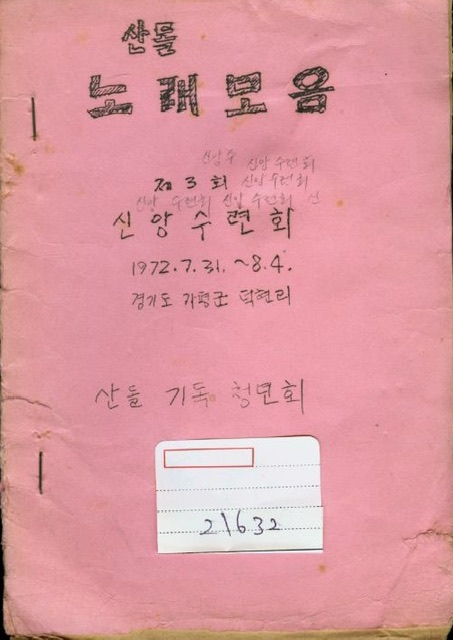 산들
노래모음
신앙수 신앙 수련회
제 3 회 신앙 수련회
신앙 수련회 신앙 수련회 신
신앙수련회
1972.7.31.~8.4.
경기도 가평군 덕현리
산들 기독 청년회
21632